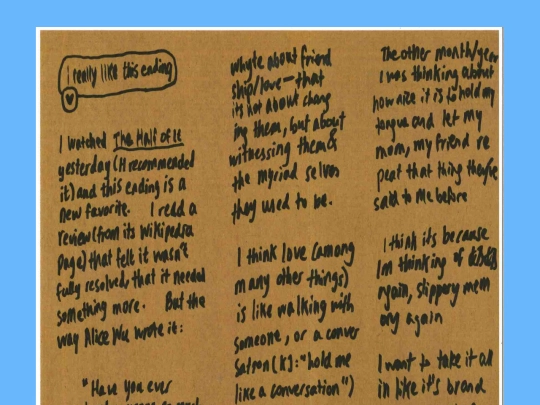 I really like this ending
I watched The Half of It
yesterday (H recommended
it) and this ending is a
new favorite. I read a
review (from its Wikipedia
page) that felt it wasn't
fully resolved, that it needed
something more. But the
way Alice Wu wrote it:
"Have you ever
whyte about friend
ship/love—that
it's not about chang
ing them, but about
witnessing them &
the myriad selves
they used to be.
I think love (among
many other things)
is like walking with
someone, or a conver
sation (K): "hold me
like a conversation")
The other month/year
I was thinking about
how nice it is to hold my
tongue and let my
mom, my friend re
peat that thing they've
said to me before
I think it's because
I'm thinking of
again, slippery mem
ory again
I want to take it all
in like it's brand